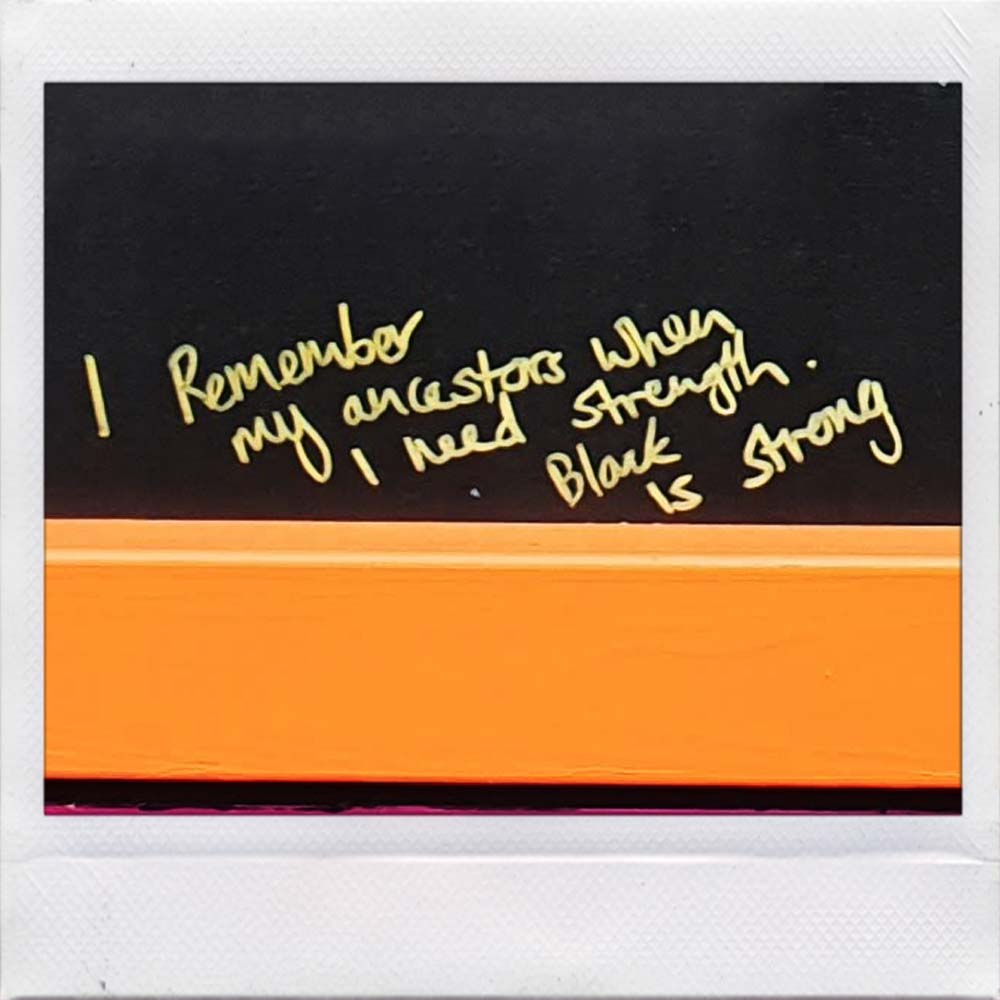 I Remember
my ancestors when
I need strength.
Black
is strong